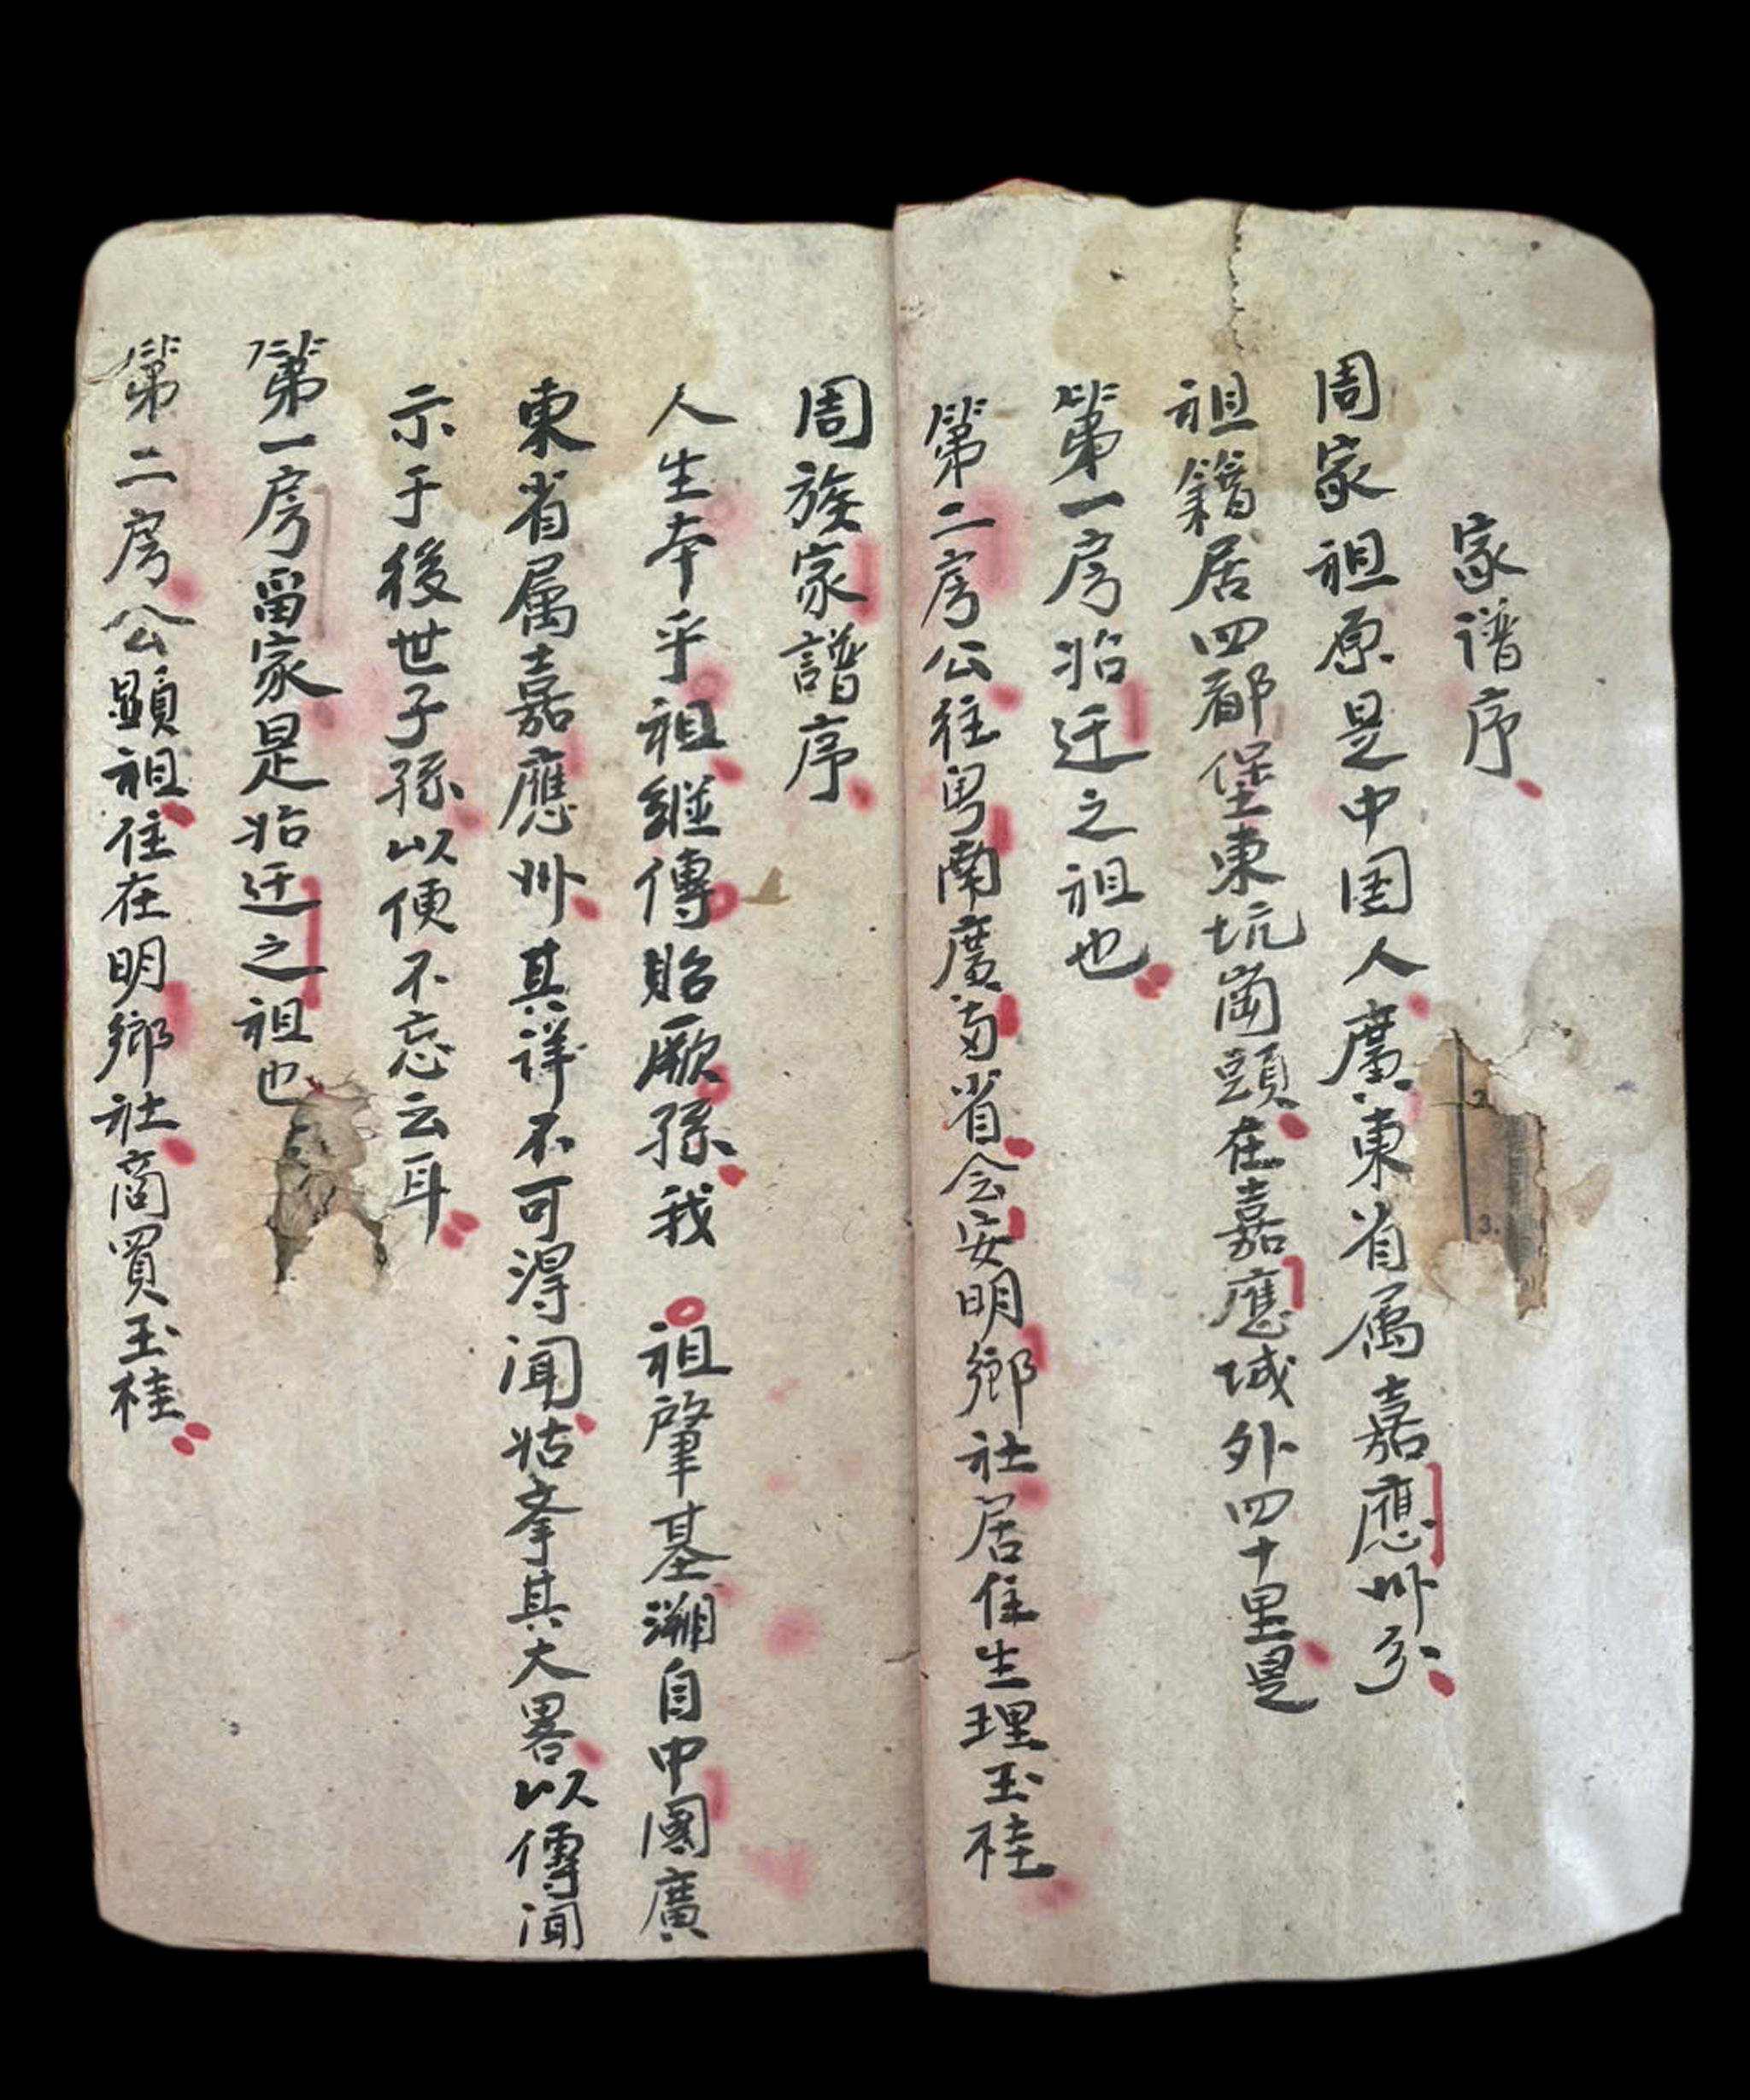 家譜序
周家祖原是中国人廣東省属嘉應州分
祖籍居四都堡東坑崗頭在嘉應城外四十里是
第一房始迁之祖也
第二房公往粤南廣南省会安明鄉社居住生理玉桂
周族家譜序
人生本乎祖継傳貽厥孫我 祖肇基溯自中國廣
東省属嘉應州其詳不可得闻姑奉其大畧以傳闻
示于後世子孫以便不忘云耳
第一房留家是始迁之祖也
第二房公顕祖住在明鄉社商買玉桂
2.
3.